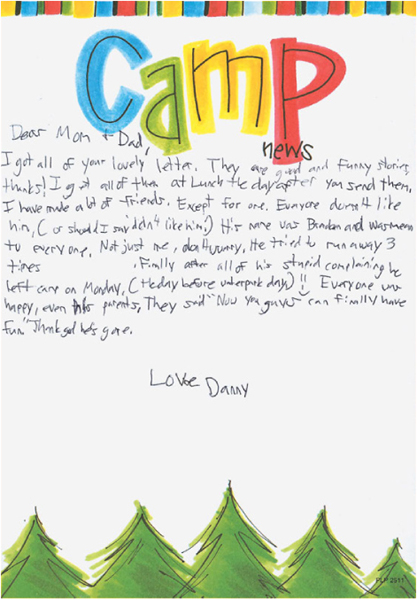 Camp
news
Dear Mom + Dad,
I got all of your lovely letter. They are good and funny stories,
thanks! I got all of them at Lunch the day after you send them.
I have make a lot of friends. Exept for one. Everyone doesn't like
him, (or should I say didn't like him!) His name was Brandon and was mean
to every one. Not just me, don't worry. He tried to run away 3
times . Finally after all of his stupid complaining he
left camp on Monday, (the day before waterpark day)!! Everyone was
happy, even his parents, They said "Now you guys can finally have
fun." Thank god he's gone.
Love Danny
FLP 2911